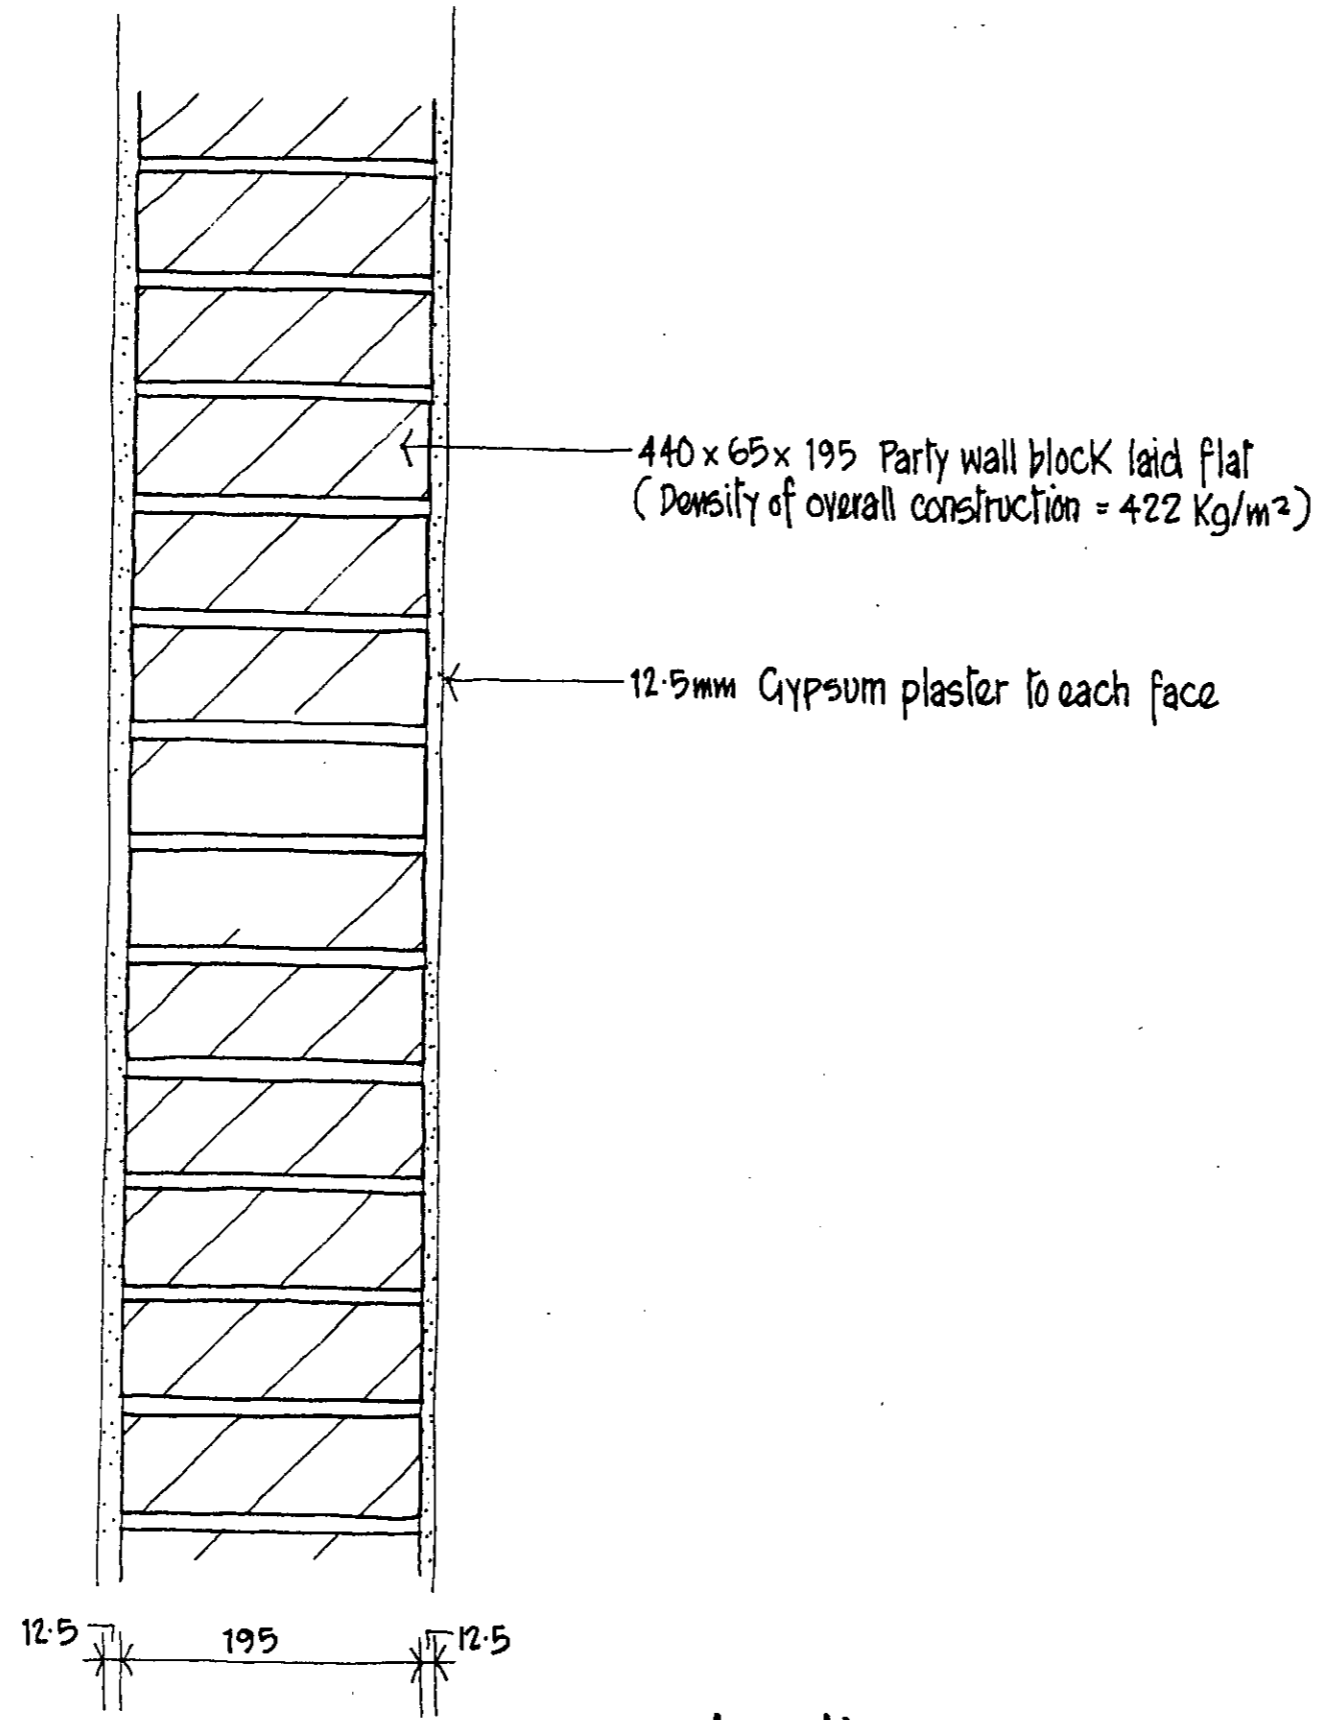 440 x 65 x 195 Party wall block laid flat
(Density of overall construction = 422 Kg/m²)
12·5mm Gypsum plaster to each face
12·5 195 12·5